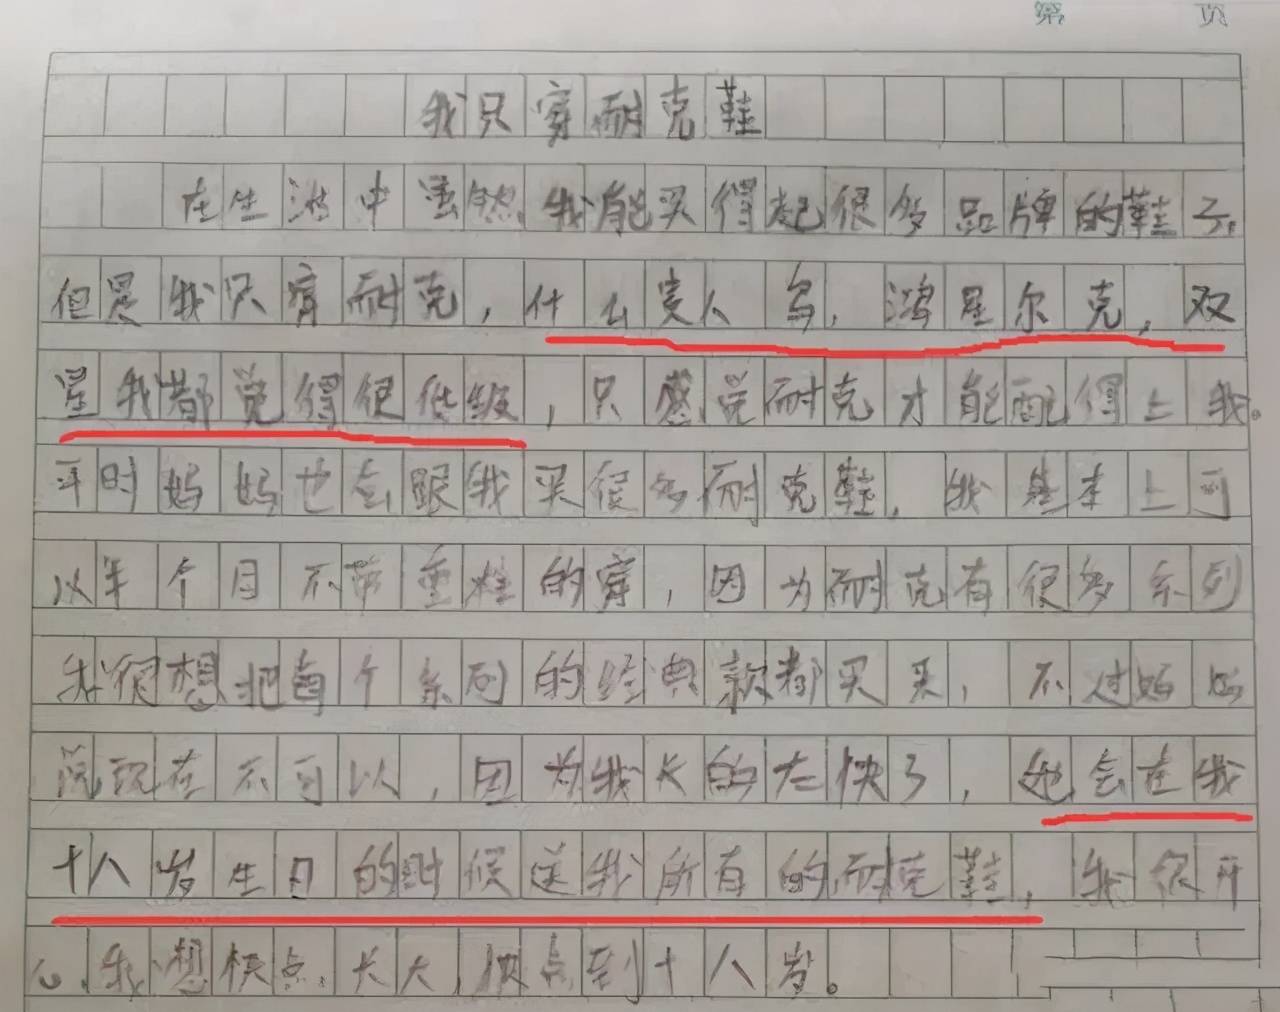 第 页
我只穿耐克鞋
在生活中虽然我能买得起很多品牌的鞋子,
但是我只穿耐克,什么贵人鸟,鸿星尔克,双
星我都觉得很低级,只感觉耐克才能配得上我。
平时妈妈也会跟我买很多耐克鞋,我基本上可
以半个月不带重样的穿,因为耐克有很多系列
我很想把每个系列的经典款都买来,不过妈妈
说现在不可以,因为我长的太快了,她会在我
十八岁生日的时候送我所有的耐克鞋,我很开
心,我想快点长大,快点到十八岁。